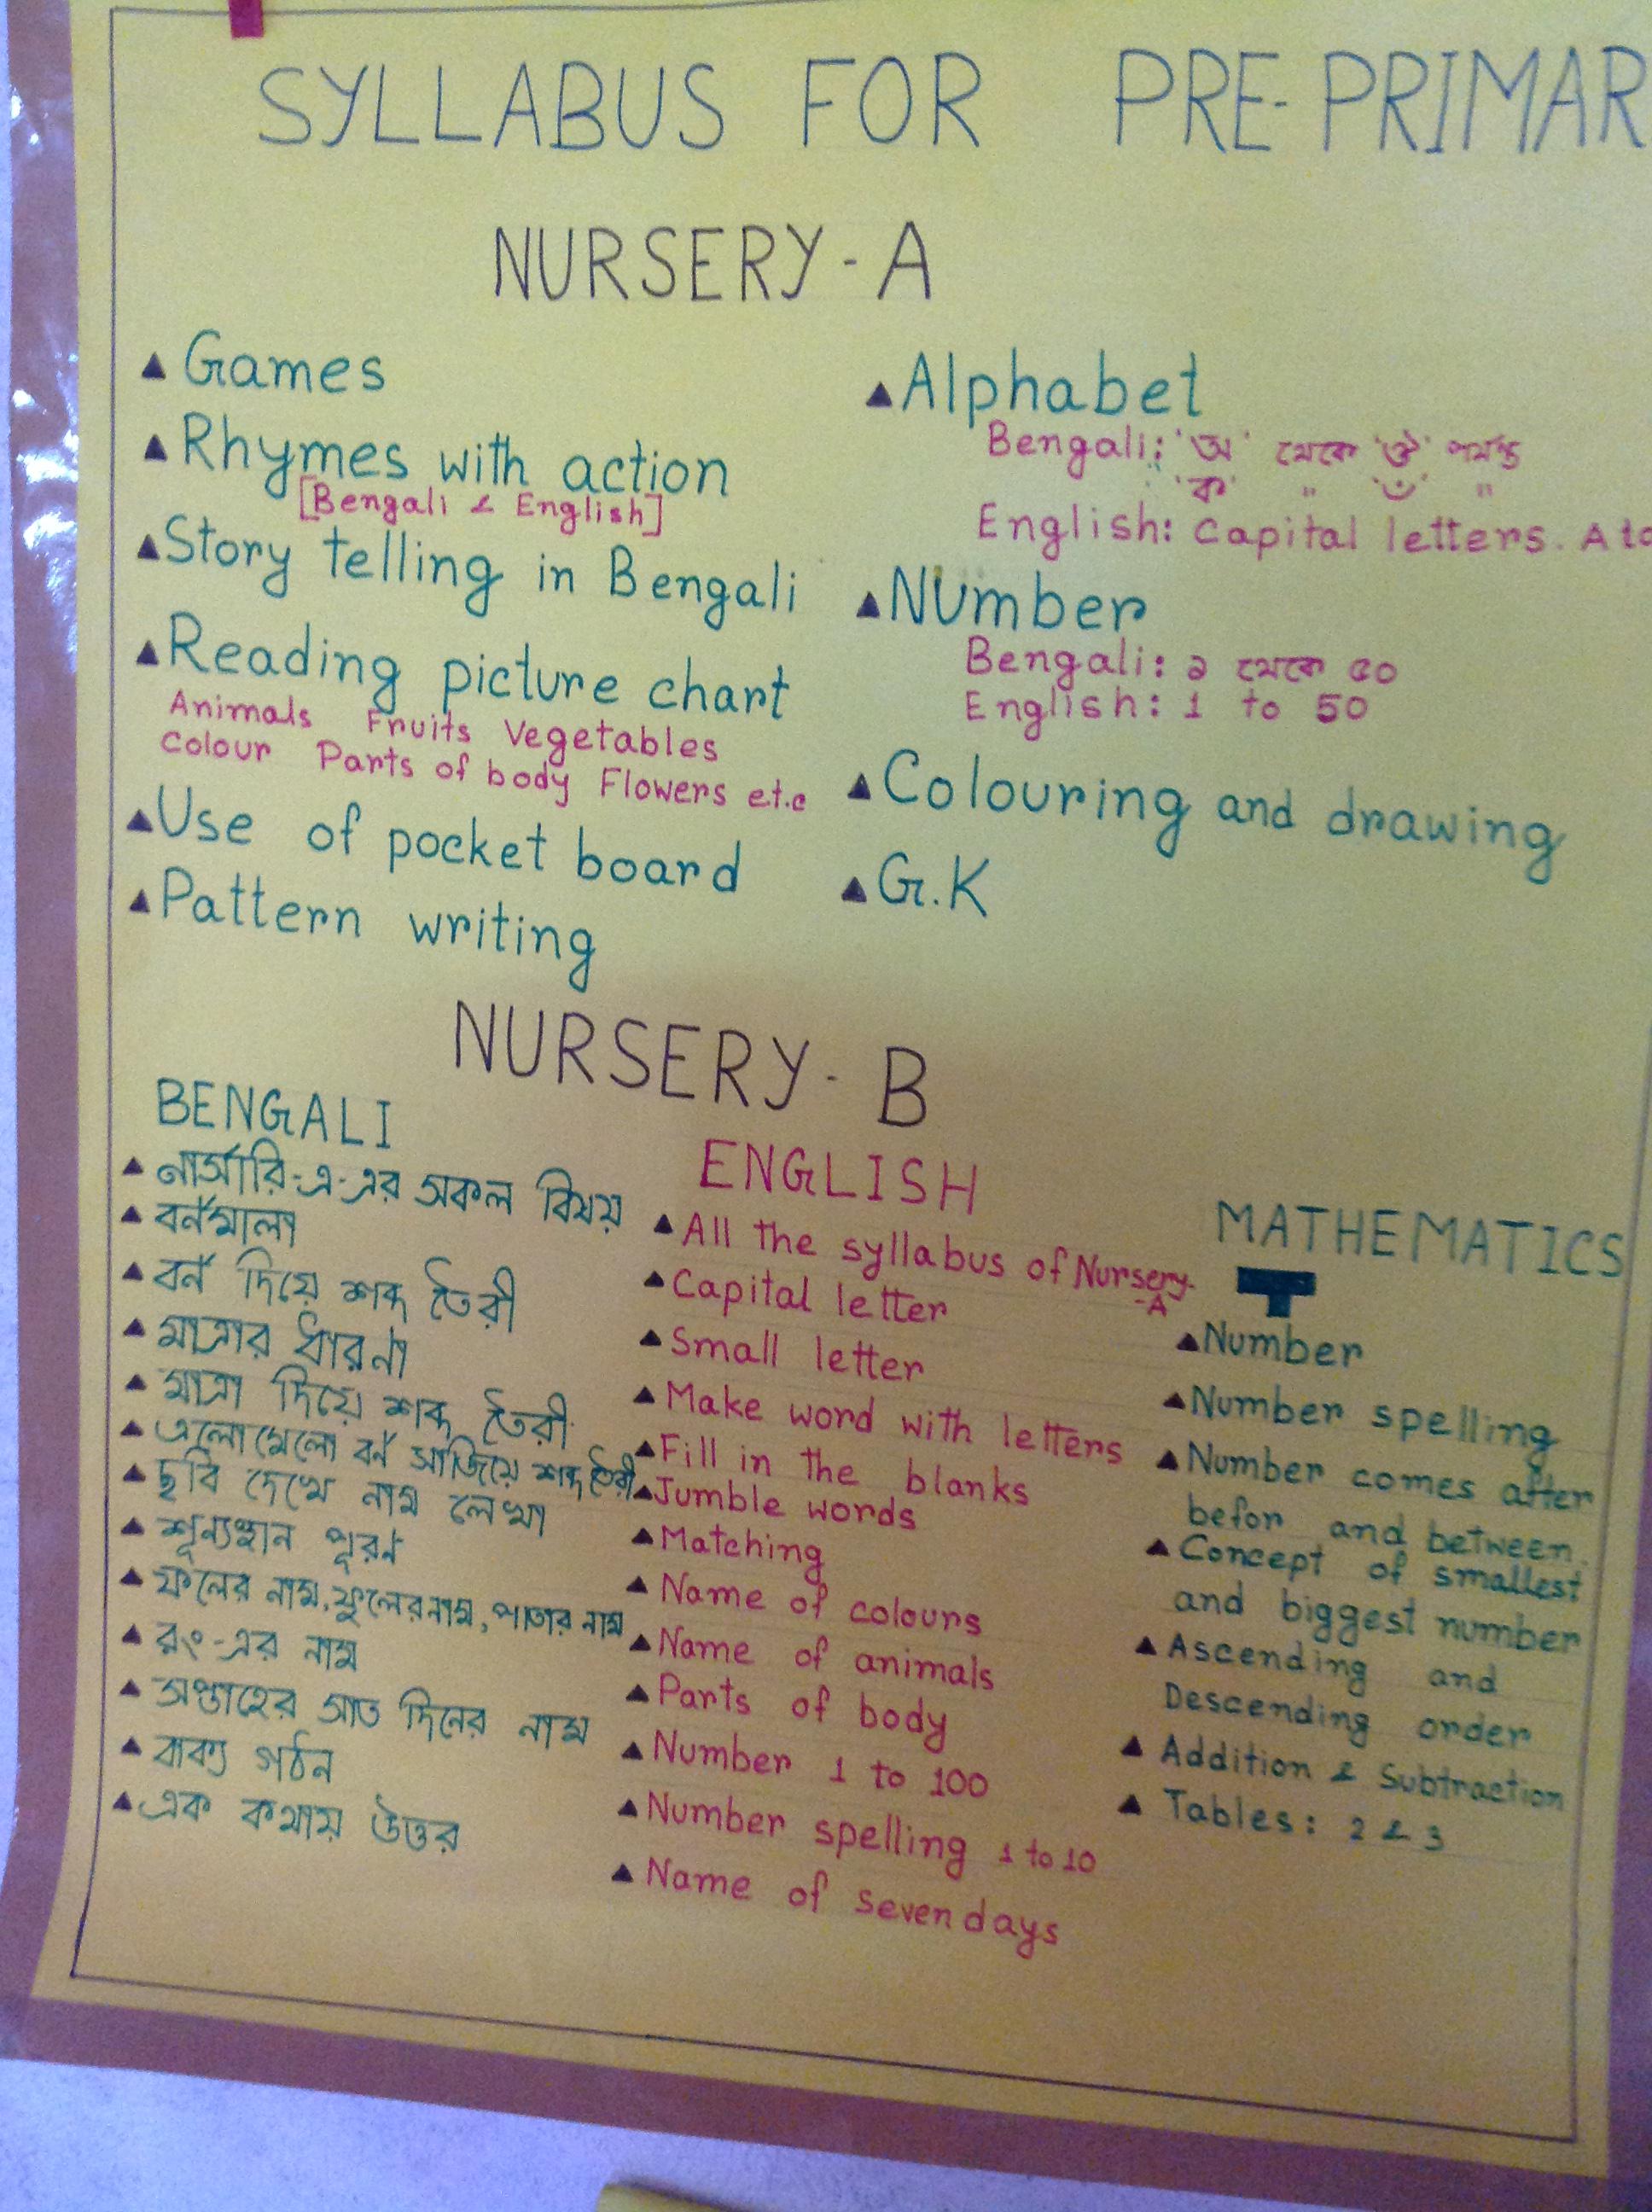 SYLLABUS FOR PRE-PRIMAR
NURSERY - A
▲ Games
▲ Rhymes with action
[Bengali & English]
▲ Story telling in Bengali
▲ Reading picture chart
Animals Fruits Vegetables
Colour Parts of body Flowers e.t.c
▲ Use of pocket board
▲ Pattern writing
▲ Alphabet
Bengali: 'অ' থেকে 'ঔ' পর্যন্ত
'ক' " 'ঁ' "
English: Capital letters. A to
▲ Number
Bengali: ১ থেকে ৫০
English: 1 to 50
▲ Colouring and drawing
▲ G.K
NURSERY - B
BENGALI
▲ নার্সারি-এ-এর সকল বিষয়
▲ বর্নমালা
▲ বর্ন দিয়ে শব্দ তৈরী
▲ মাত্রার ধারনা
▲ মাত্রা দিয়ে শব্দ তৈরী
▲ এলোমেলো বর্ন সাজিয়ে শব্দ তৈরী
▲ ছবি দেখে নাম লেখা
▲ শূন্যস্থান পূরন
▲ ফলের নাম, ফুলের নাম, পাতার নাম
▲ রং-এর নাম
▲ সপ্তাহের সাত দিনের নাম
▲ বাক্য গঠন
▲ এক কথায় উত্তর
ENGLISH
▲ All the syllabus of Nursery-
-A
▲ Capital letter
▲ Small letter
▲ Make word with letters
▲ Fill in the blanks
▲ Jumble words
▲ Matching
▲ Name of colours
▲ Name of animals
▲ Parts of body
▲ Number 1 to 100
▲ Number spelling 1 to 10
▲ Name of seven days
MATHEMATICS
▲ Number
▲ Number spelling
▲ Number comes after
befor and between.
▲ Concept of smallest
and biggest number
▲ Ascending and
Descending order
▲ Addition & Subtraction
▲ Tables: 2 & 3